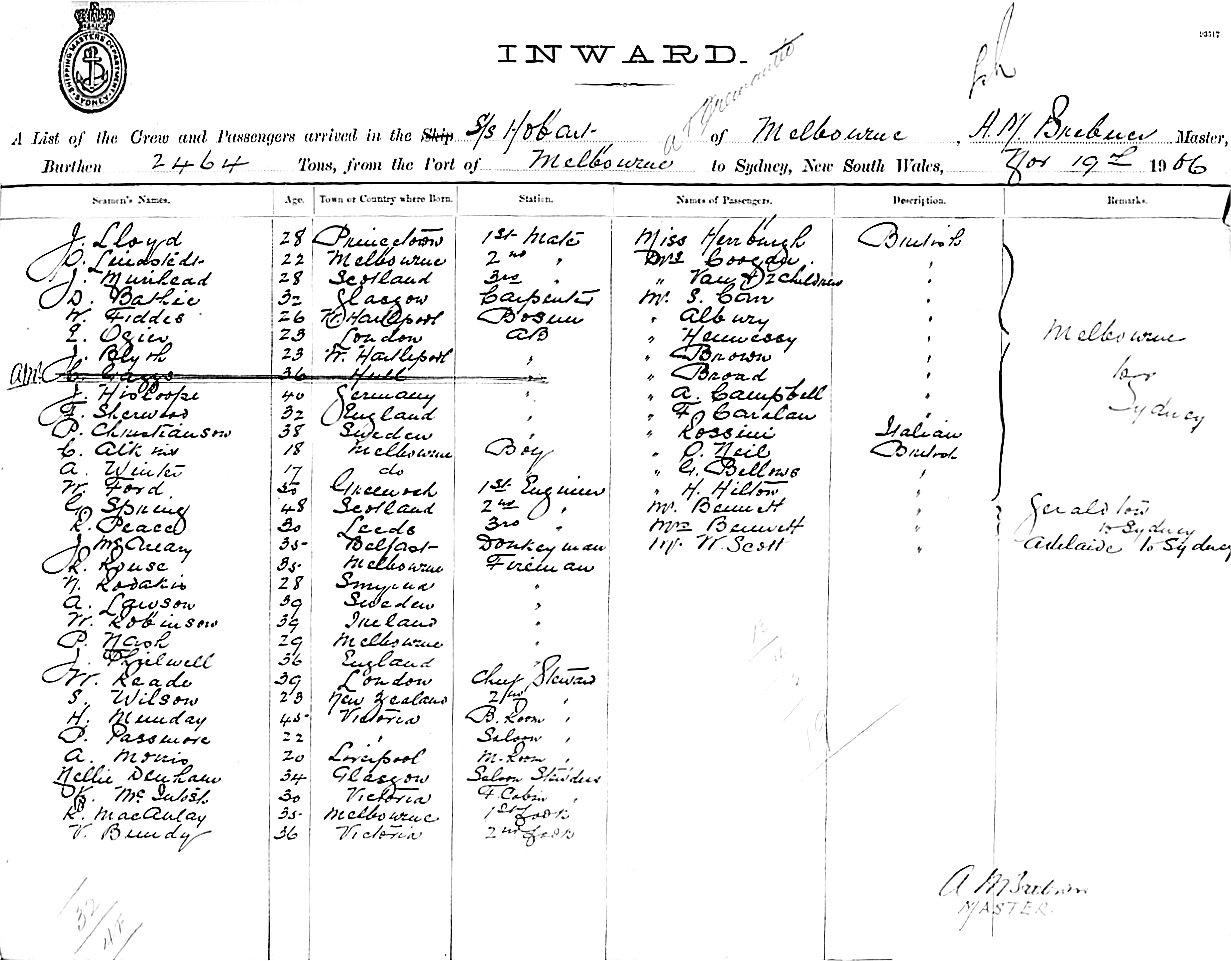 SHIPPING MASTERS DEPARTMENT SYDNEY
INWARD.
& Fremantle
A List of the Crew and Passengers arrived in the Ship S/s Hobart of Melbourne, A.M. Brebner Master,
Burthen 2464 Tons, from the Port of Melbourne to Sydney, New South Wales, Nov 19th 1906
Seamen's Names. Age. Town or Country where Born. Station. Names of Passengers. Description. Remarks.
J. Lloyd 28 Princetown 1st Mate Miss British
Lindstedt 22 Melbourne 2nd " Mrs "
J. Muirhead 28 Scotland 3rd " " 2 children "
D. Bathie 32 Glasgow Carpenter Mr. S. Carr "
W. Fiddes 26 W. Hartlepool Bosun " Albury "
E. Ogier 23 London AB " Hennessy "
J. Blyth 23 W. Hartlepool " " Brown "
36 Hull " " Broad "
J. 40 Germany " " A. Campbell "
F. Sherwood 32 England " " F "
P. Christianson 38 Sweden " " Rossini Italian
C. Atkins 18 Melbourne Boy " O. Neil British
A. Winter 17 do " G. Bellows "
W. Ford 50 Greenock 1st Engineer " H. Hilton "
Melbourne
to
Sydney
G. Spring 48 Scotland 2nd " Mr. Bennett " Geraldton
R. Peace 30 Leeds 3rd " Mrs Bennett " to Sydney
J. McCreary 35 Belfast Donkeyman Mr. W. Scott " Adelaide to Sydney
R. Rouse 35 Melbourne Fireman
N. Rodakis 28 Smyrna "
A. Lawson 39 Sweden "
W. Robinson 39 Ireland "
P. Nash 29 Melbourne "
J. Thelwell 36 England "
W. Reade 39 London Chief Steward
S. Wilson 23 New Zealand 2nd "
H. Munday 45 Victoria B. Room "
P. Passmore 22 " Saloon "
A. Morris 20 Liverpool M. Room "
Nellie Denham 34 Glasgow Saloon Stewdess
K. McIntosh 30 Victoria F. Cabin "
R. MacAulay 35 Melbourne 1st Cook
V. Bundy 36 Victoria 2nd Cook
A M Brebner
MASTER.
32/48